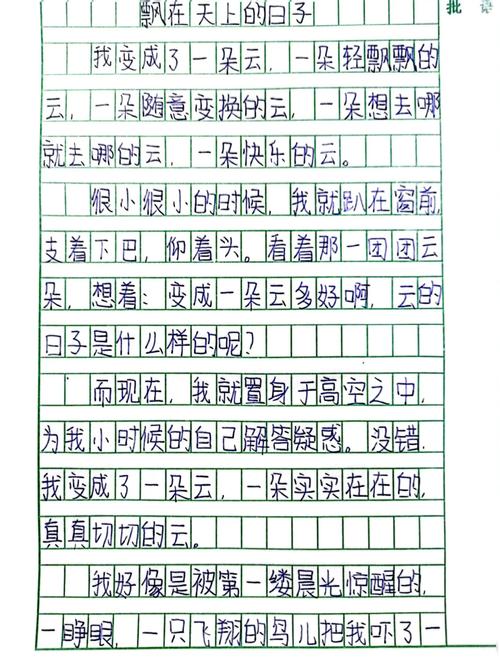 批 语
飘在天上的日子
我变成了一朵云，一朵轻飘飘的
云，一朵随意变换的云，一朵想去哪
就去哪的云，一朵快乐的云。
很小很小的时候，我就趴在窗前，
支着下巴，仰着头。看着那一团团云
朵，想着：变成一朵云多好啊，云的
日子是什么样的呢？
而现在，我就置身于高空之中，
为我小时候的自己解答疑惑。没错，
我变成了一朵云，一朵实实在在的，
真真切切的云。
我好像是被第一缕晨光惊醒的，
一睁眼，一只飞翔的鸟儿把我吓了一